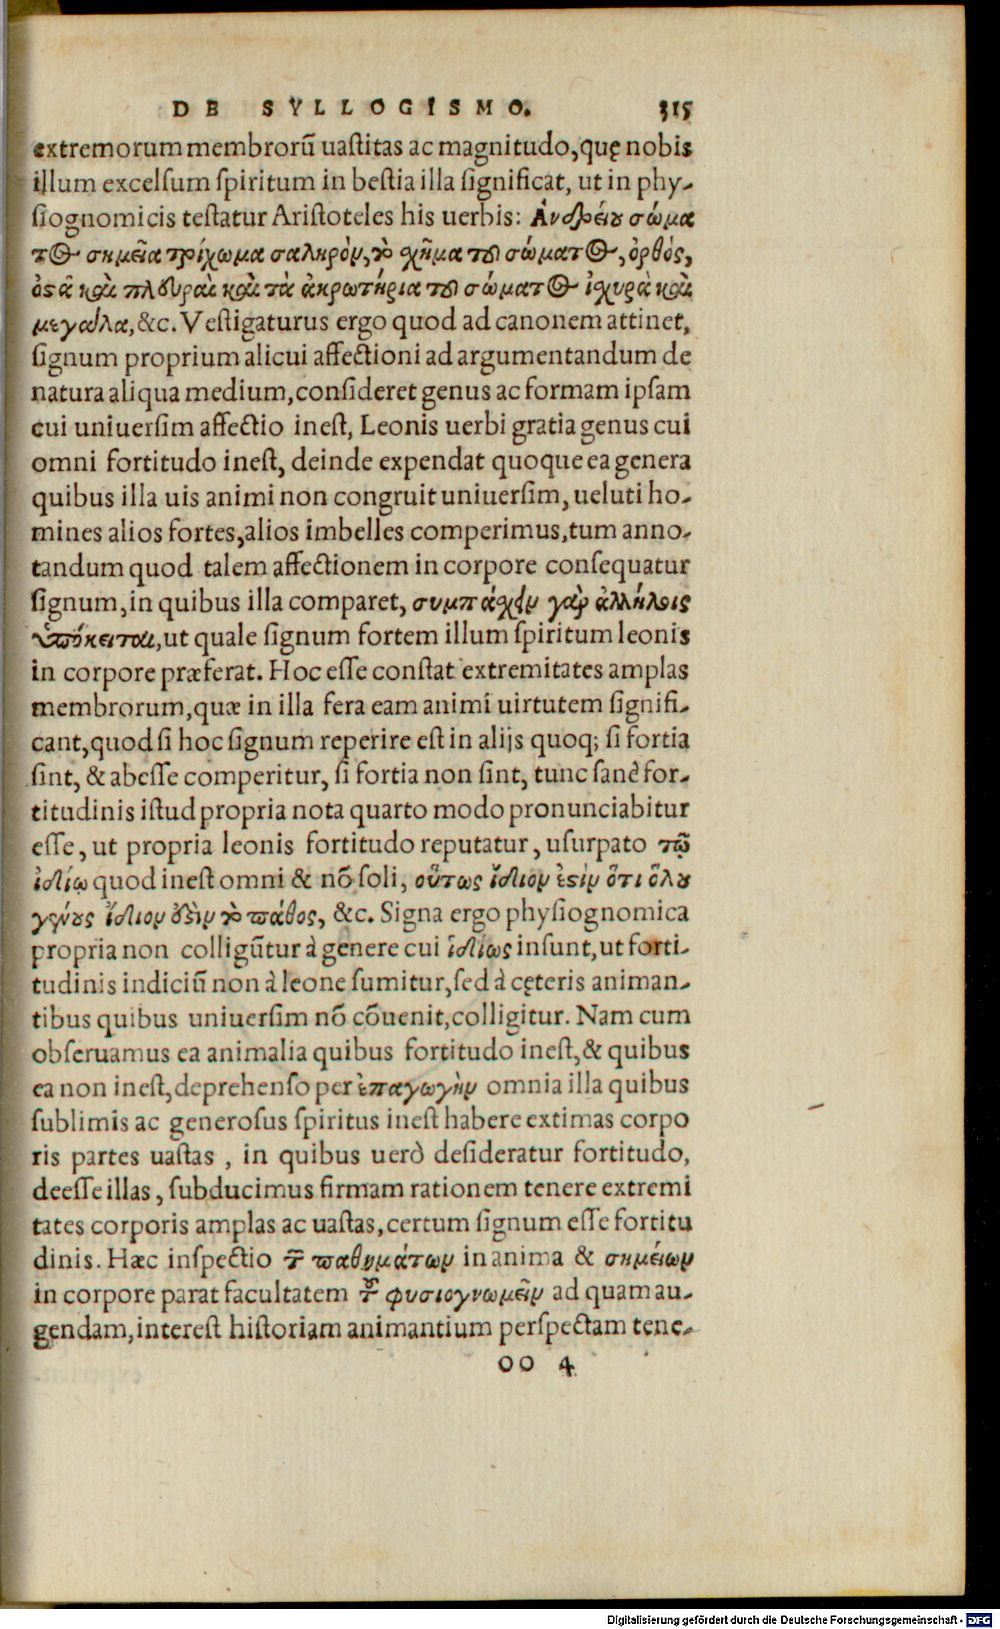 DE SYLLOGISMO. 315
extremorum membrorũ uastitas ac magnitudo, quę nobis
illum excelsum spiritum in bestia illa significat, ut in phy-
siognomicis testatur Aristoteles his uerbis: Ἀνδρείου σώμα
τος σημεῖα τρίχωμα σκληρὸν, τὸ χῆμα τοῦ σώματος, ὀρθὸς,
ὀστᾶ καὶ πλευραὶ καὶ τὰ ἀκρωτήρια τοῦ σώματος ἰχυρὰ καὶ
μεγάλα, &c. Vestigaturus ergo quod ad canonem attinet,
signum proprium alicui affectioni ad argumentandum de
natura aliqua medium, consideret genus ac formam ipsam
cui uniuersim affectio inest, Leonis uerbi gratia genus cui
omni fortitudo inest, deinde expendat quoque ea genera
quibus illa uis animi non congruit uniuersim, ueluti ho-
mines alios fortes, alios imbelles comperimus, tum anno-
tandum quod talem affectionem in corpore consequatur
signum, in quibus illa comparet, συμπάχειν γὰρ ἀλλήλοις
ὑπόκειται, ut quale signum fortem illum spiritum leonis
in corpore præferat. Hoc esse constat extremitates amplas
membrorum, quæ in illa fera eam animi uirtutem signifi-
cant, quod si hoc signum reperire est in alijs quoq; si fortia
sint, & abesse comperitur, si fortia non sint, tunc sanè for-
titudinis istud propria nota quarto modo pronunciabitur
esse, ut propria leonis fortitudo reputatur, usurpato τῷ
ἰδίῳ quod inest omni & nõ soli, οὕτως ἴδιον ἐστὶν ὅτι ὅλου
γένους ἴδιον ἐστὶν τὸ πάθος, &c. Signa ergo physiognomica
propria non colligũtur à genere cui ἰδίως insunt, ut forti-
tudinis indiciũ non à leone sumitur, sed à cęteris animan-
tibus quibus uniuersim nõ cõuenit, colligitur. Nam cum
obseruamus ea animalia quibus fortitudo inest, & quibus
ea non inest, deprehenso per ἐπαγωγὴν omnia illa quibus
sublimis ac generosus spiritus inest habere extimas corpo
ris partes uastas, in quibus uerò desideratur fortitudo,
deesse illas, subducimus firmam rationem tenere extremi
tates corporis amplas ac uastas, certum signum esse fortitu
dinis. Hæc inspectio τῶν παθημάτων in anima & σημείων
in corpore parat facultatem τοῦ φυσιογνωμεῖν ad quam au-
gendam, interest historiam animantium perspectam tene-
oo 4
Digitalisierung gefördert durch die Deutsche Forschungsgemeinschaft - DFG